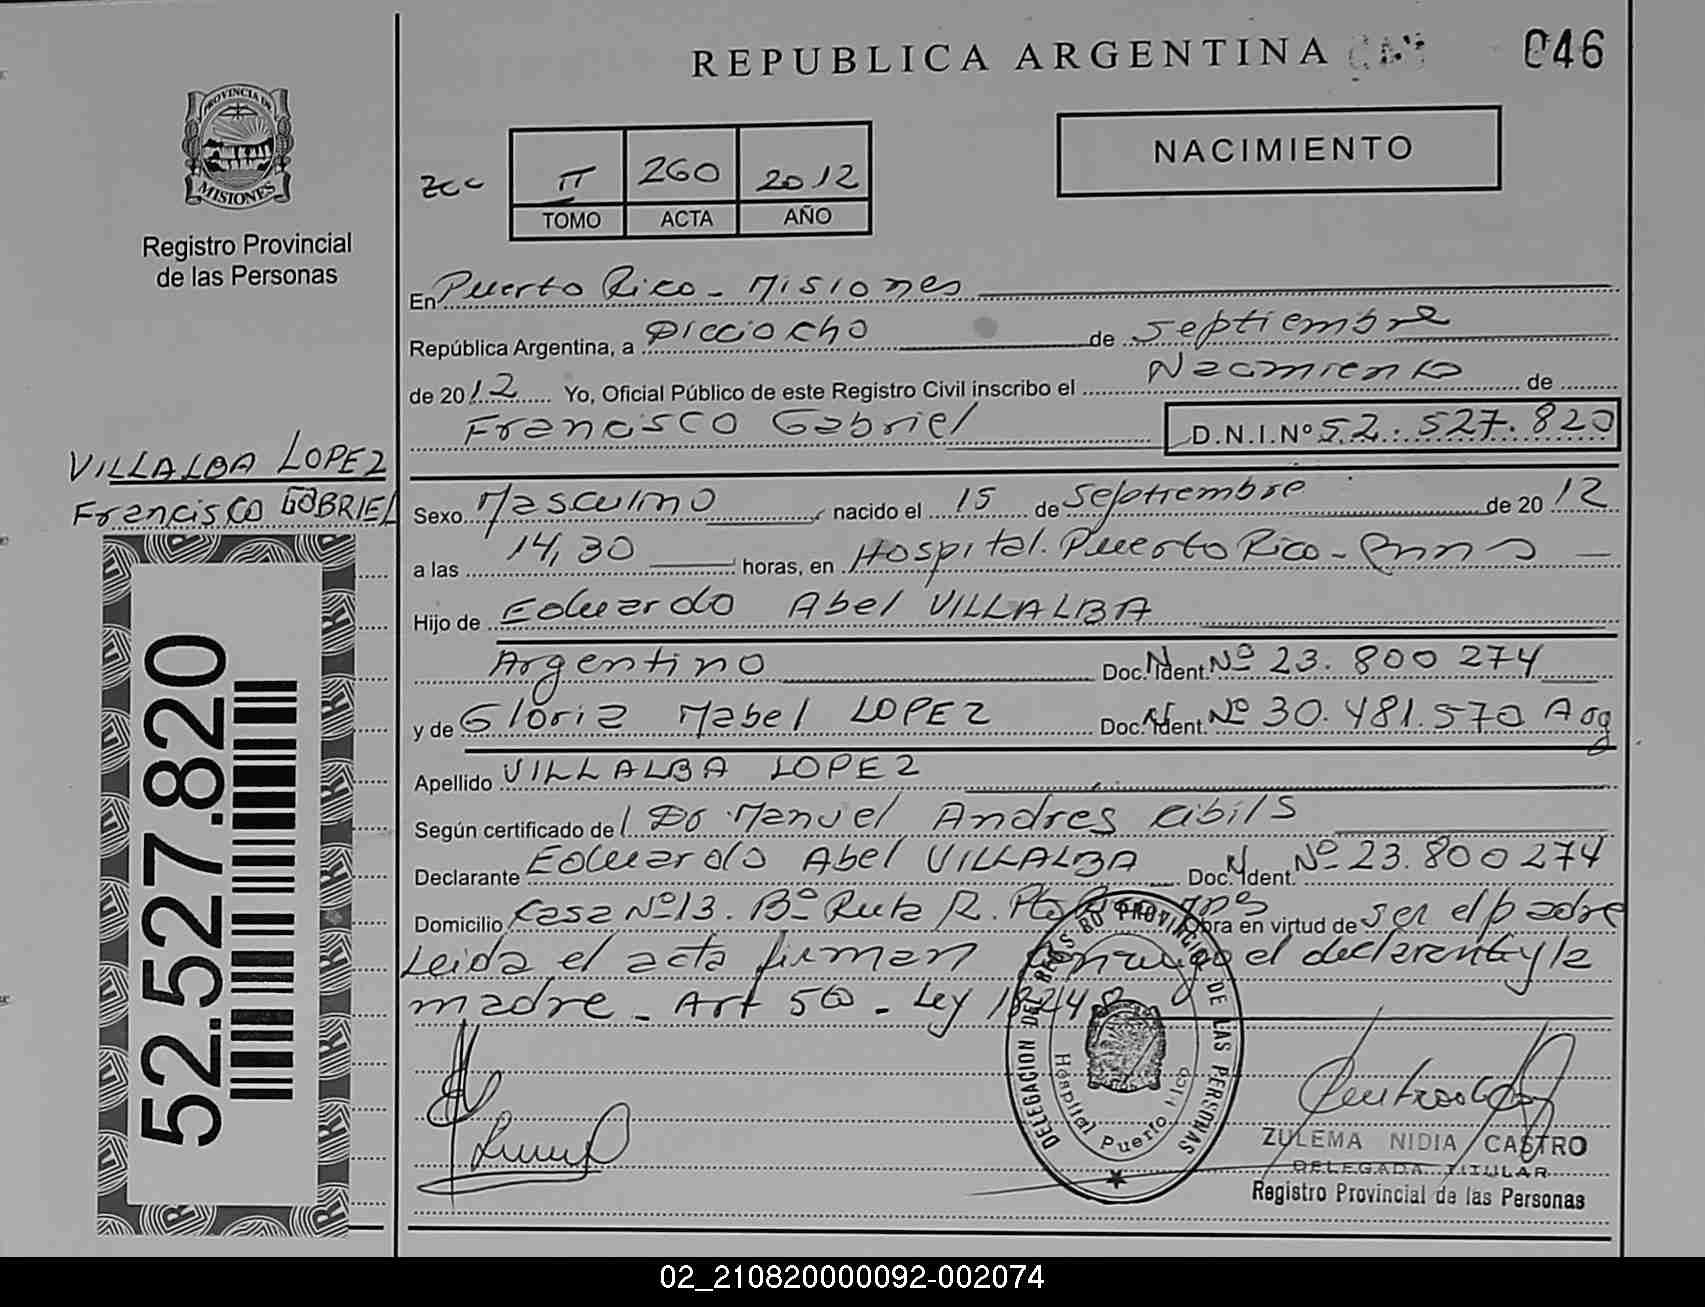 REPUBLICA ARGENTINA
046
PROVINCIA DE
MISIONES
Registro Provincial
de las Personas
NACIMIENTO
II 260 2012
TOMO ACTA AÑO
En Puerto Rico - Misiones
República Argentina, a Dieciocho de Septiembre
de 2012 Yo, Oficial Público de este Registro Civil inscribo el Nacimiento de
Francisco Gabriel D.N.I.Nº 52.527.820
VILLALBA LOPEZ
Francisco GABRIEL
52.527.820
Sexo Masculino nacido el 15 de Septiembre de 2012
a las 14,30 horas, en Hospital. Puerto Rico -
Hijo de Eduardo Abel VILLALBA
Argentino Doc. Ident. Nº 23.800274
y de Gloria Mabel LOPEZ Doc. Ident. Nº 30.481.570 Arg
Apellido VILLALBA LOPEZ
Según certificado de Dr Manuel Andres
Declarante Eduardo Abel VILLALBA Doc. Ident. Nº 23.800274
Domicilio Casa Nº13. Bº Ruta R. Obra en virtud de ser el padre
Leida el acta firman conmigo el declarante y la
madre - Art - Ley 18248
DELEGACION DEL REGISTRO PROVINCIAL DE LAS PERSONAS
Hospital Puerto Rico
ZULEMA NIDIA CASTRO
DELEGADA TITULAR
Registro Provincial de las Personas
02_210820000092-002074